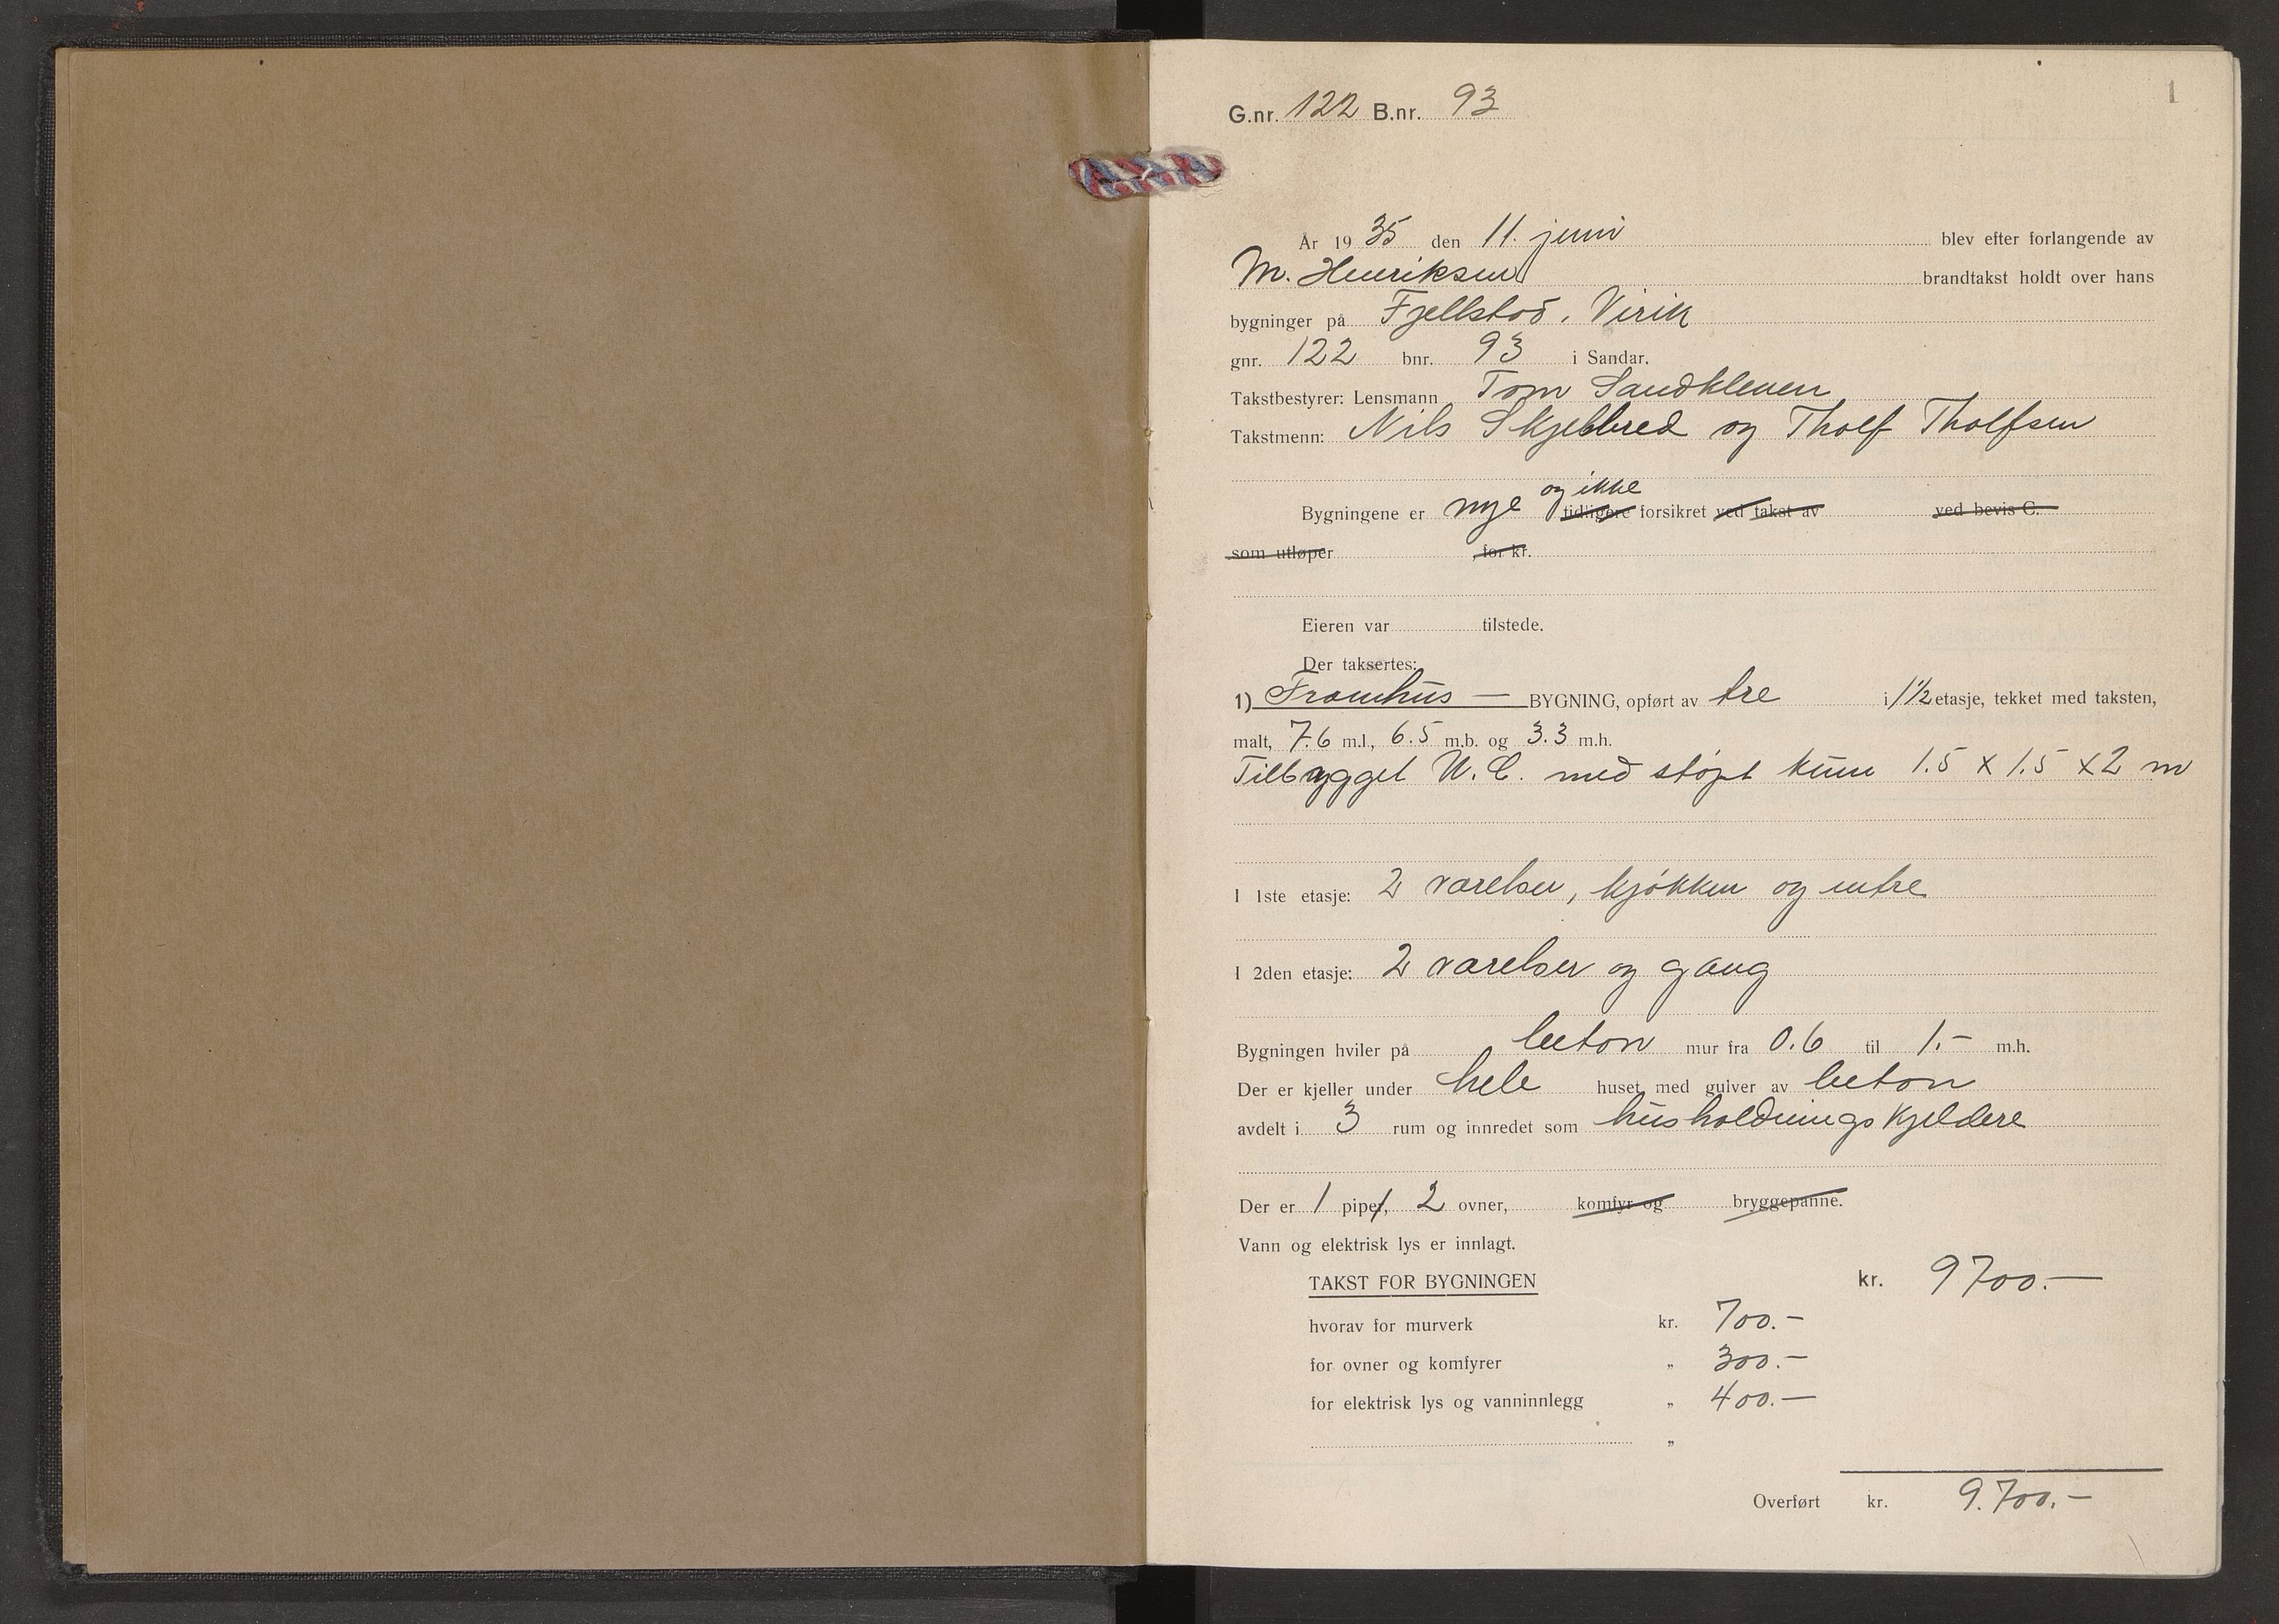 1
G.nr. 122 B.nr. 93
År 19 35 den 11. juni blev efter forlangende av
M. Henriksen brandtakst holdt over hans
bygninger på Fjellstad, Virik
gnr. 122 bnr. 93 i Sandar.
Takstbestyrer: Lensmann Tom Sandkleven
Takstmenn: Nils Skjelbred og Tholf Tholfsen
og ikke
Bygningene er nye tidligere forsikret ved takst av ved bevis C.
som utløper , for kr.
Eieren var tilstede.
Der taksertes:
1) Framhus — BYGNING, opført av tre i 1½ etasje, tekket med taksten,
malt, 7.6 m.l., 6.5 m.b. og 3.3 m.h.
Tilbygget W.C. med støpt kum 1.5 x 1.5 x 2 m
I 1ste etasje: 2 værelser, kjøkken og entre
I 2den etasje: 2 værelser og gang
Bygningen hviler på beton mur fra 0.6 til 1.- m.h.
Der er kjeller under hele huset med gulver av beton
avdelt i 3 rum og innredet som husholdningskjeldere
Der er 1 piper, 2 ovner, komfyr og bryggepanne.
Vann og elektrisk lys er innlagt.
TAKST FOR BYGNINGEN kr. 9700.—
hvorav for murverk kr. 700.-
for ovner og komfyrer „ 300.-
for elektrisk lys og vanninnlegg „ 400.—
„
Overført kr. 9.700.-